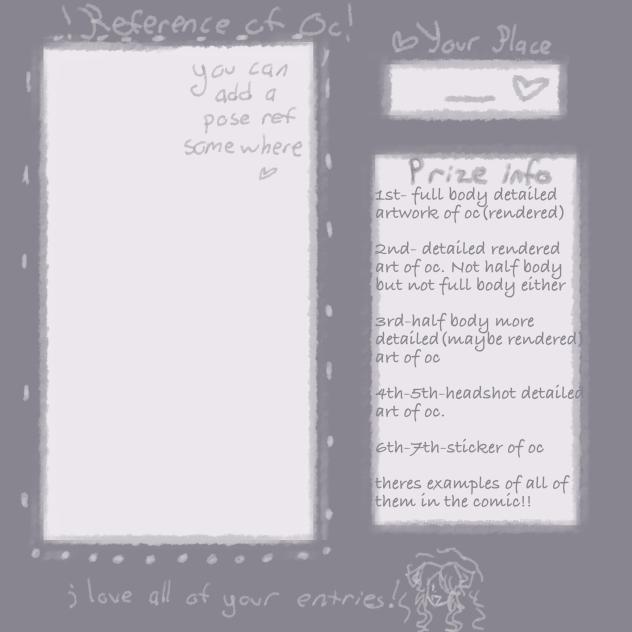 ! Reference of Oc!
you can
add a
pose ref
somewhere
Your Place
Prize info
1st- full body detailed
artwork of oc(rendered)
2nd- detailed rendered
art of oc. Not half body
but not full body either
3rd-half body more
detailed(maybe rendered)
art of oc
4th-5th-headshot detailed
art of oc.
6th-7th-sticker of oc
theres examples of all of
them in the comic!!
i love all of your entries!